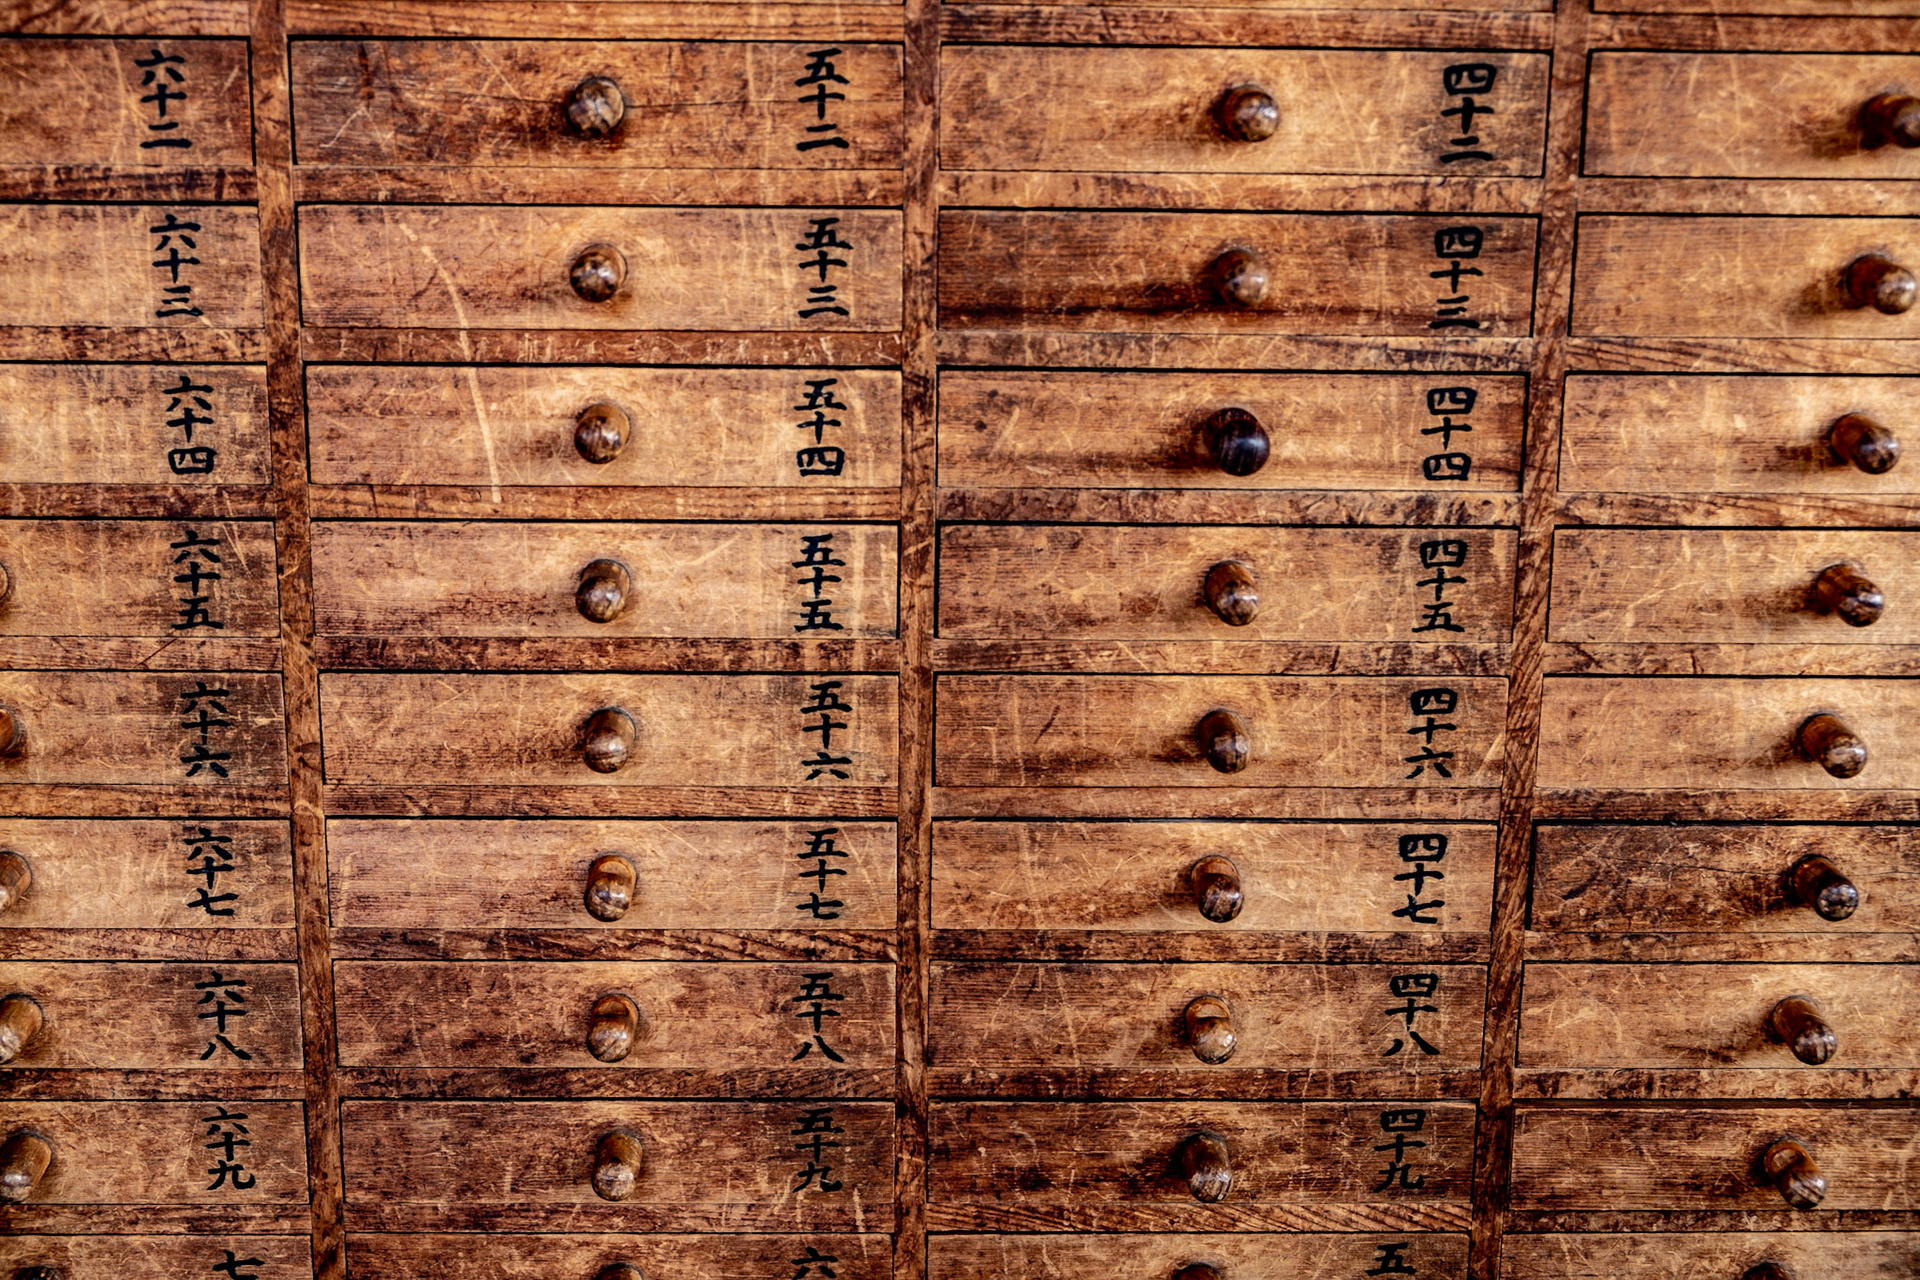 四十二
四十三
四十四
四十五
四十六
四十七
四十八
四十九
五
五十二
五十三
五十四
五十五
五十六
五十七
五十八
五十九
六
六十二
六十三
六十四
六十五
六十六
六十七
六十八
六十九
七